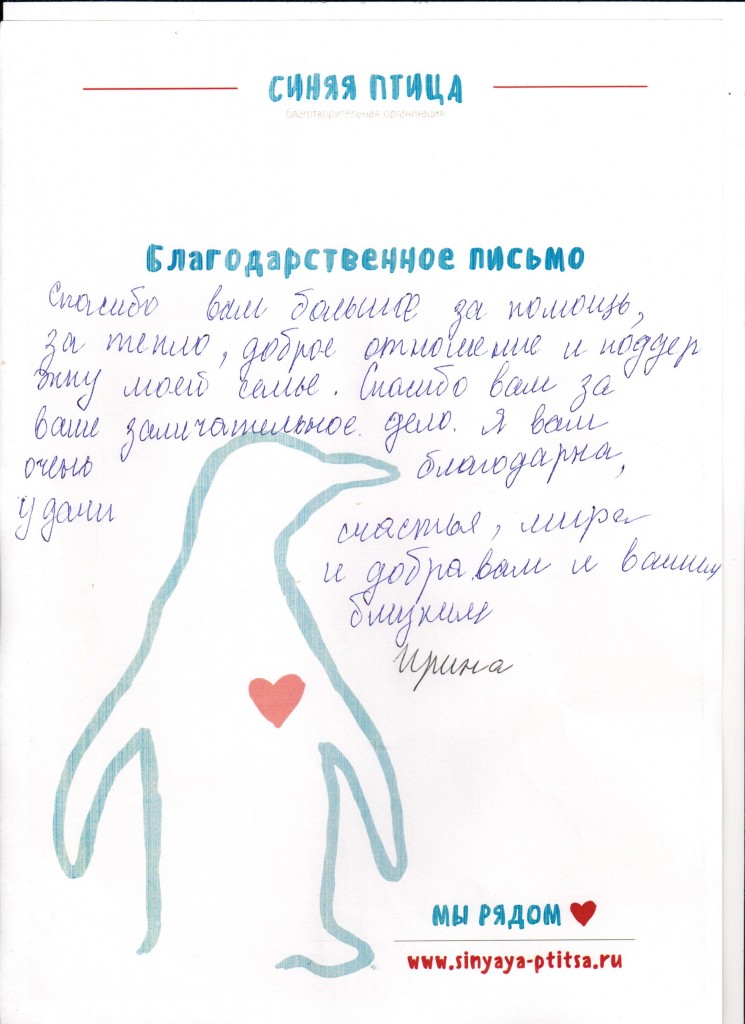 СИНЯЯ ПТИЦА
благотворительная организация
Благодарственное письмо
Спасибо вам большое за помощь,
за тепло, доброе отношение и поддер
жку моей семье. Спасибо вам за
ваше замичательное дело. Я вам
очень благодарна,
удачи счастья, мира
и добра вам и вашим
близким
Ирина
МЫ РЯДОМ
www.sinyaya-ptitsa.ru